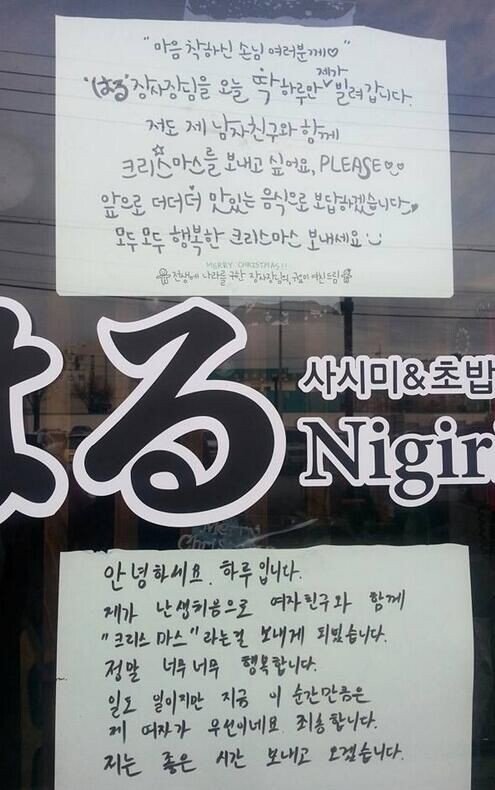 "마음 착하신 손님 여러분께♡"
"はる"장사장님을 오늘 딱 하루만 제가 빌려갑니다.
저도 제 남자친구와 함께
크리스마스를 보내고 싶어요, PLEASE♡
앞으로 더더더 맛있는 음식으로 보답하겠습니다
모두모두 행복한 크리스마스 보내세요
MERRY CHRISTMAS!!
전생에 나라를 구한 장사장님의, 귀요미 여친드림
はる
사시미&초밥
Nigiri
Merry
Christmas
안녕하세요. 하루입니다.
제가 난생처음으로 여자친구와 함께
"크리스 마스" 라는걸 보내게 되었습니다.
정말 너무너무 행복합니다.
일도 일이지만 지금 이 순간만큼은
제 여자가 우선이네요. 죄송합니다.
저는 좋은 시간 보내고 오겠습니다.